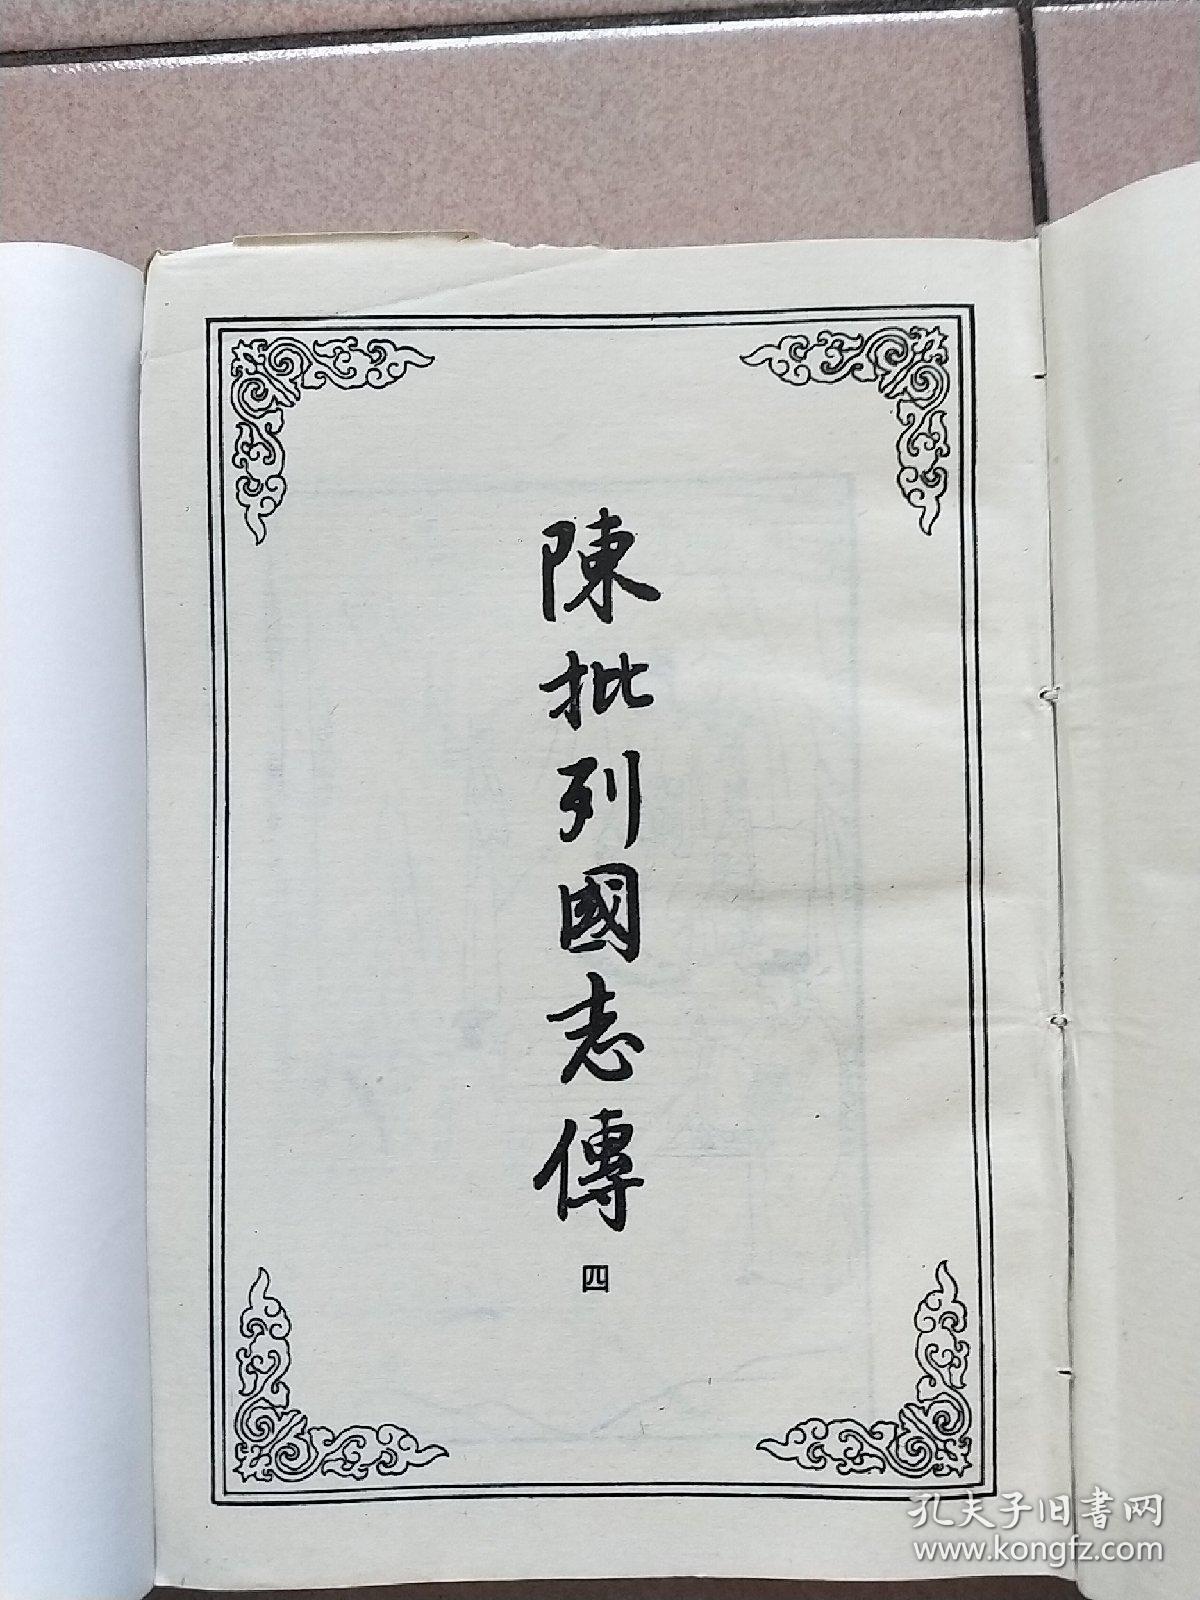 陳批列國志傳
四
孔夫子旧书网
www.kongfz.com